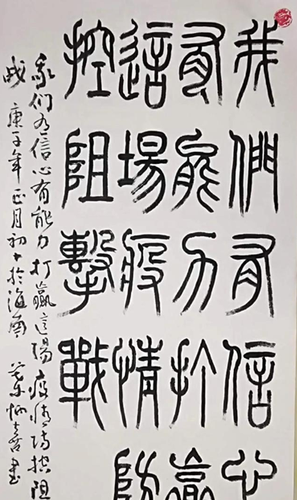 我們有信心
有能力打贏
這場疫情防
控阻擊戰
我们有信心有能力打赢这场疫情防控阻击
战 庚子年正月初十於海南